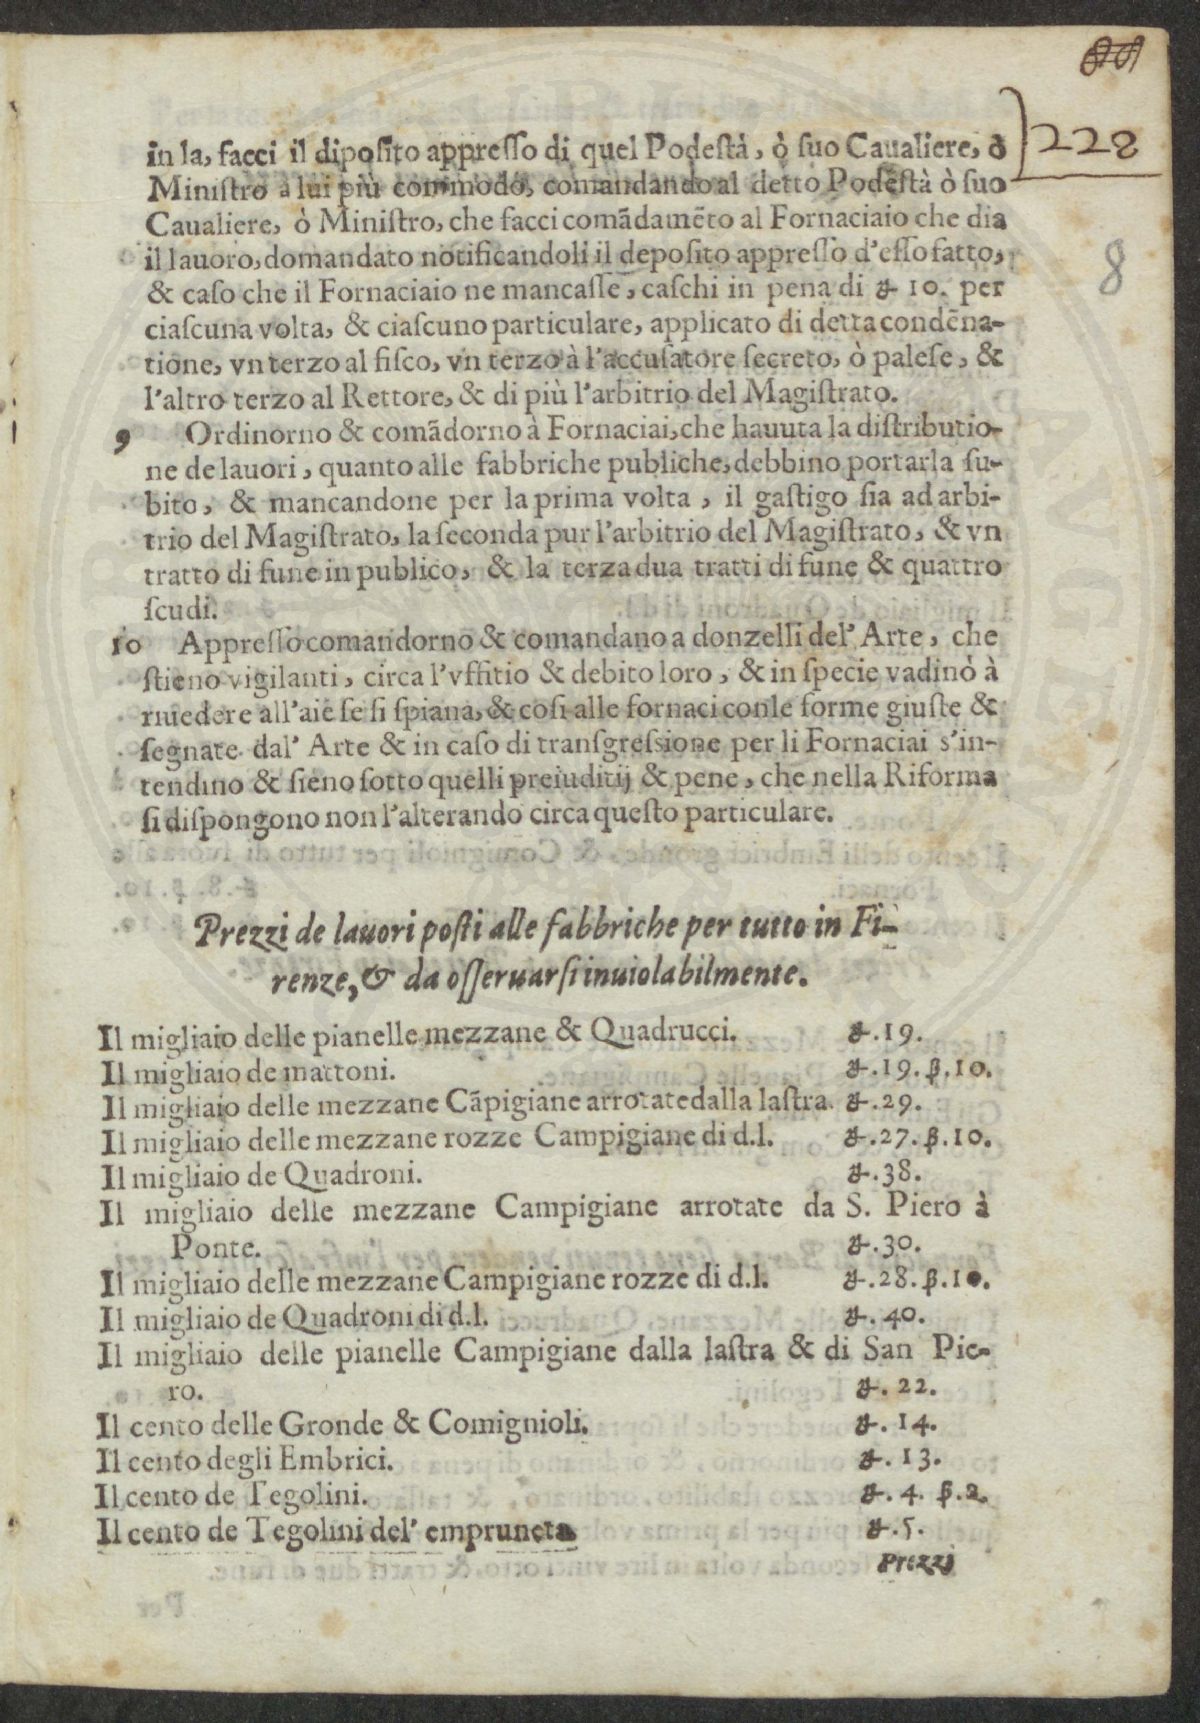 228
8
in la, facci il diposito appresso di quel Podestà, ò suo Caualiere, ò
Ministro a lui più commodo, comandando al detto Podestà ò suo
Caualiere, ò Ministro, che facci comãdamẽto al Fornaciaio che dia
il lauoro, domandato notificandoli il deposito appresso d'esso fatto,
& caso che il Fornaciaio ne mancasse, caschi in pena di ₰ 10. per
ciascuna volta, & ciascuno particulare, applicato di detta condẽna-
tione, vn terzo al fisco, vn terzo à l'accusatore secreto, ò palese, &
l'altro terzo al Rettore, & di più l'arbitrio del Magistrato.
9 Ordinorno & comãdorno à Fornaciai, che hauuta la distributio-
ne de lauori, quanto alle fabbriche publiche, debbino portarla su-
bito, & mancandone per la prima volta, il gastigo sia ad arbi-
trio del Magistrato, la seconda pur l'arbitrio del Magistrato, & vn
tratto di fune in publico, & la terza dua tratti di fune & quattro
scudi.
10 Appresso comandorno & comandano a donzelli del' Arte, che
stieno vigilanti, circa l'vffitio & debito loro, & in specie vadino à
riuedere all'aie se si spiana, & cosi alle fornaci con le forme giuste &
segnate dal' Arte & in caso di transgressione per li Fornaciai s'in-
tendino & sieno sotto quelli preiuditij & pene, che nella Riforma
si dispongono non l'alterando circa questo particulare.
Prezzi de lauori posti alle fabbriche per tutto in Fi-
renze, & da osseruarsi inuiolabilmente.
Il migliaio delle pianelle mezzane & Quadrucci. ₰.19.
Il migliaio de mattoni. ₰.19.β.10.
Il migliaio delle mezzane Cãpigiane arrotate dalla lastra. ₰.29.
Il migliaio delle mezzane rozze Campigiane di d.l. ₰.27.β.10.
Il migliaio de Quadroni. ₰.38.
Il migliaio delle mezzane Campigiane arrotate da S. Piero à
Ponte. ₰.30.
Il migliaio delle mezzane Campigiane rozze di d.l. ₰.28.β.10.
Il migliaio de Quadroni di d.l. ₰.40.
Il migliaio delle pianelle Campigiane dalla lastra & di San Pie-
ro. ₰. 22.
Il cento delle Gronde & Comignioli. ₰. 14.
Il cento degli Embrici. ₰. 13.
Il cento de Tegolini. ₰. 4. β.2.
Il cento de Tegolini del' empruneta ₰.5.
Prezzi